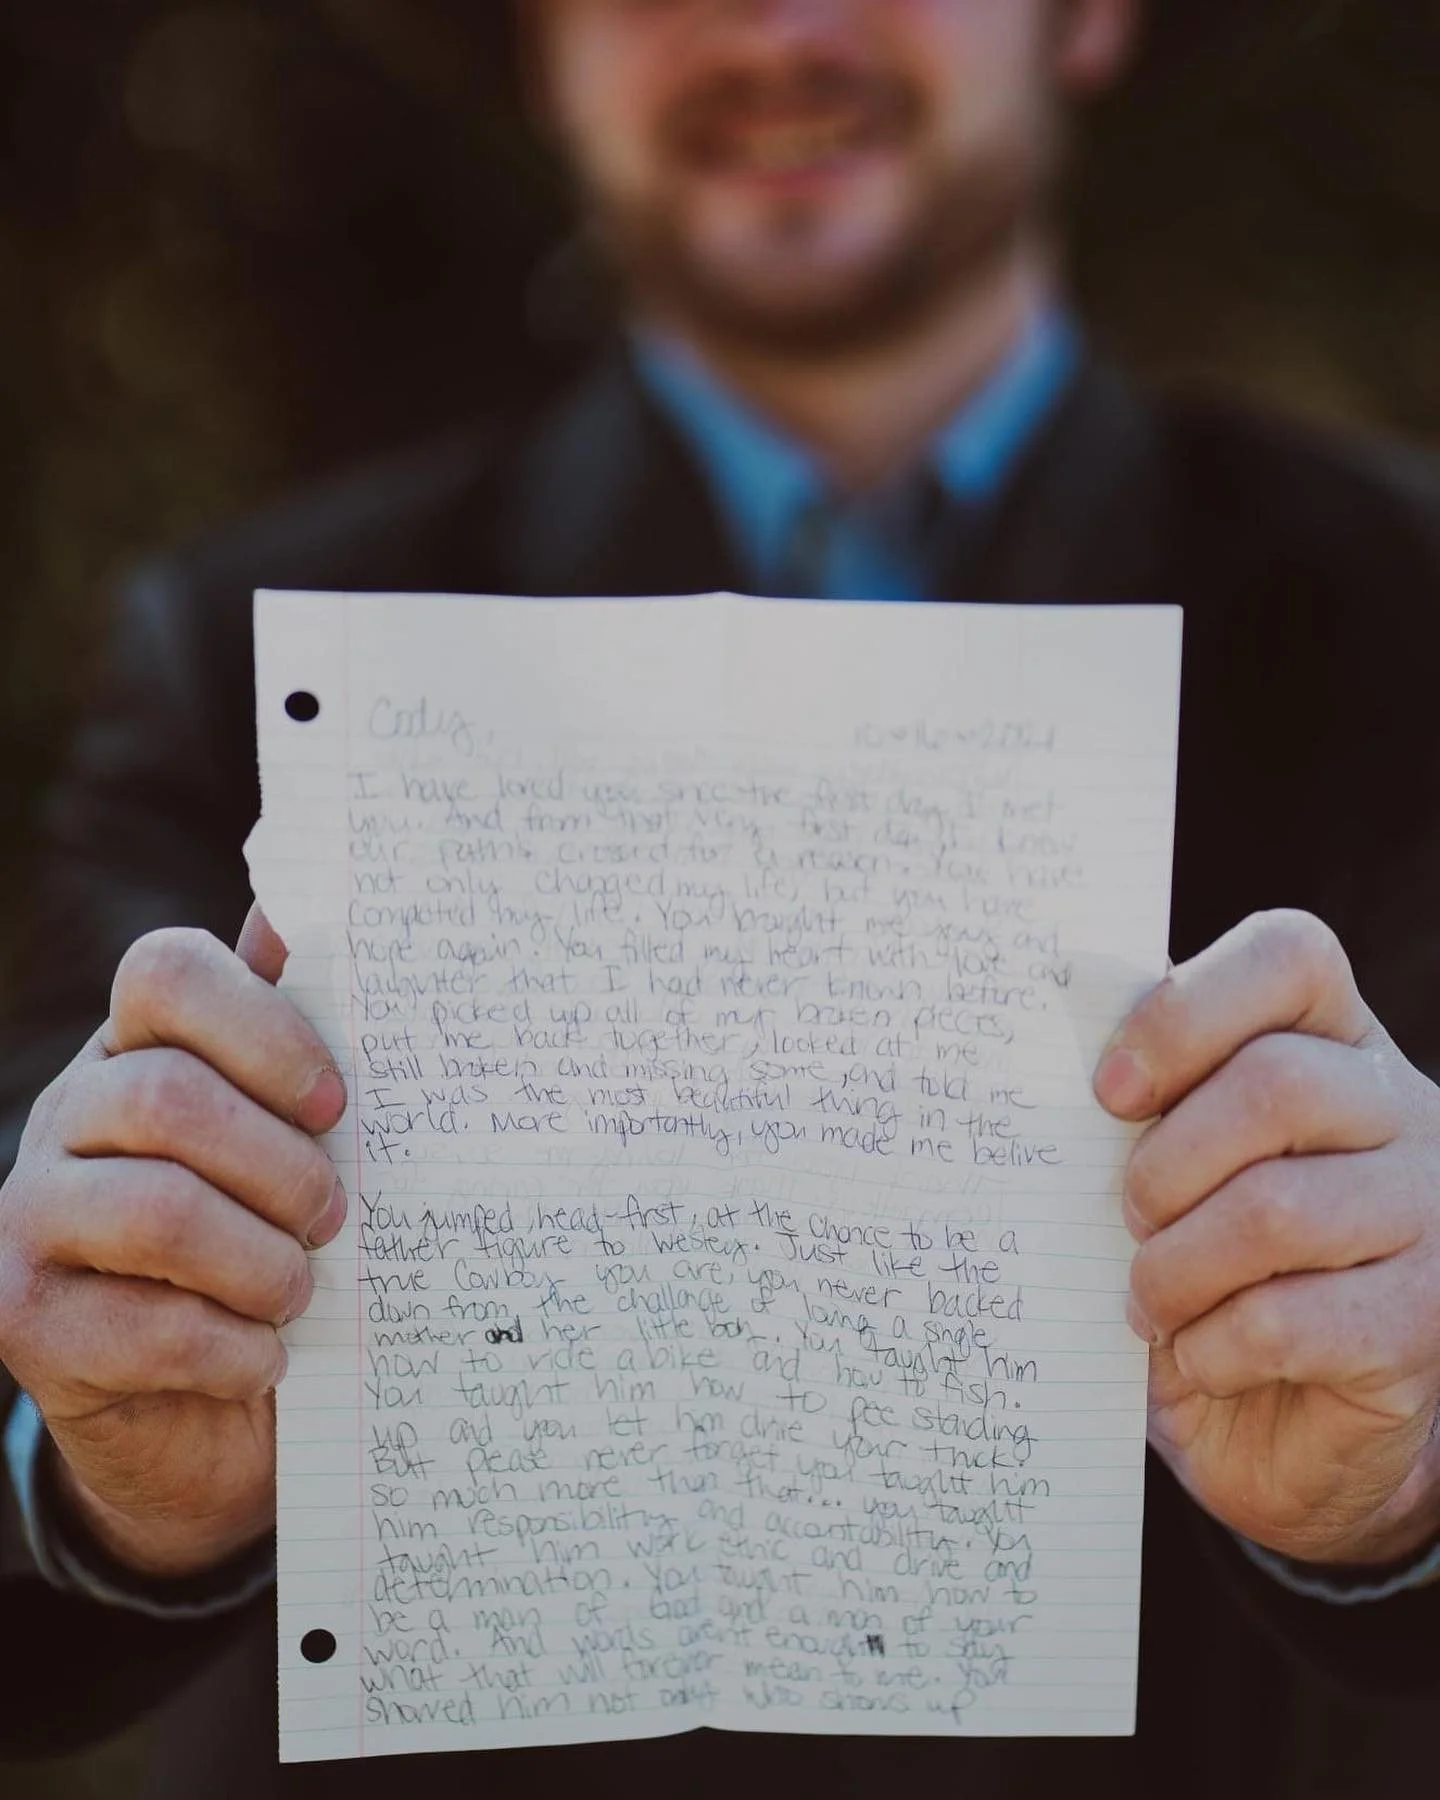 Cody,
10 ♥ 16 ♥ 2021
I have loved you since the first day I met
you. And from that very first day, I know
our paths crossed for a reason. You have
not only changed my life, but you have
completed my life. You brought me joy and
hope again. You filled my heart with love and
laughter that I had never known before.
You picked up all of my broken pieces,
put me back together, looked at me
still broken and missing some, and told me
I was the most beautiful thing in the
world. More importantly, you made me belive
it.
You jumped, head-first, at the chance to be a
father figure to Wesley. Just like the
true Cowboy you are, you never backed
down from the challenge of loving a single
mother and her little boy. You taught him
how to ride a bike and how to fish.
You taught him how to pee standing
up and you let him drive your truck.
But please never forget you taught him
so much more than that... you taught
him responsibility and accountability. You
taught him work ethic and drive and
determination. You taught him how to
be a man of God and a man of your
word. And words aren't enough to say
what that will forever mean to me. You
showed him not only who shows up